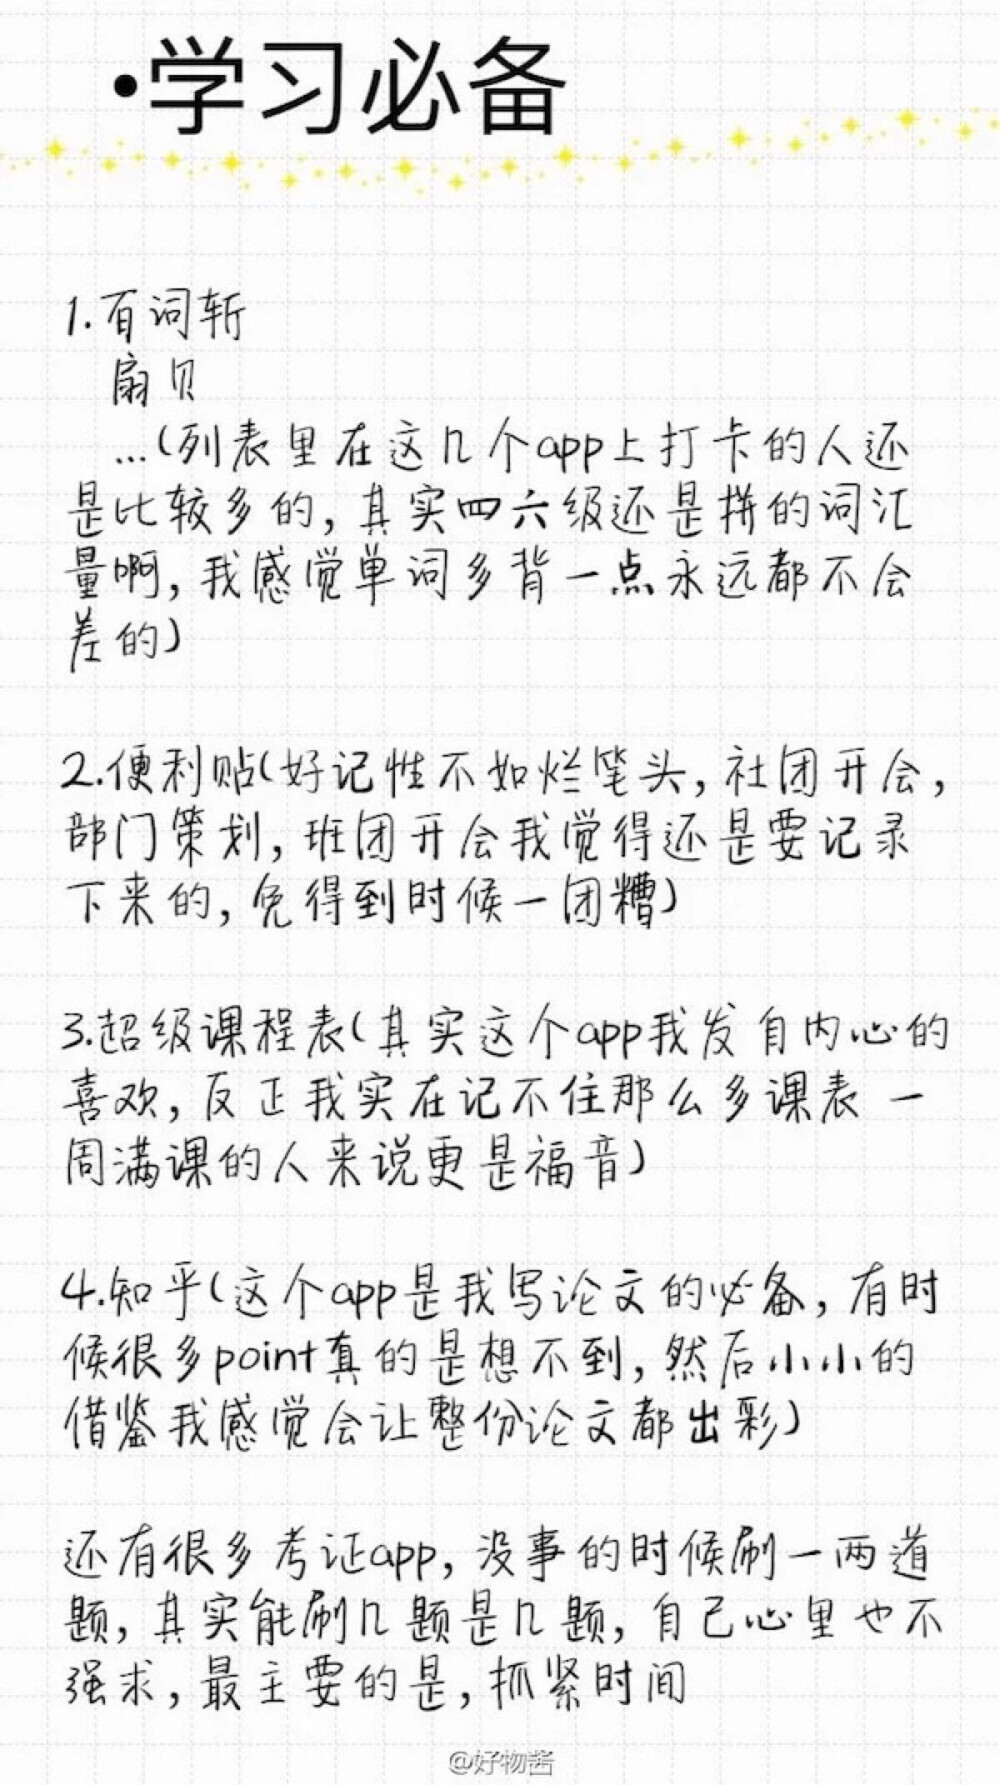 ·学习必备
1.百词斩
扇贝
...(列表里在这几个app上打卡的人还
是比较多的,其实四六级还是拼的词汇
量啊,我感觉单词多背一点永远都不会
差的)
2.便利贴(好记性不如烂笔头,社团开会,
部门策划,班团开会我觉得还是要记录
下来的,免得到时候一团糟)
3.超级课程表(其实这个app我发自内心的
喜欢,反正我实在记不住那么多课表 一
周满课的人来说更是福音)
4.知乎(这个app是我写论文的必备,有时
候很多point真的是想不到,然后小小的
借鉴我感觉会让整份论文都出彩)
还有很多考证app,没事的时候刷一两道
题,其实能刷几题是几题,自己心里也不
强求,最主要的是,抓紧时间
@好物酱